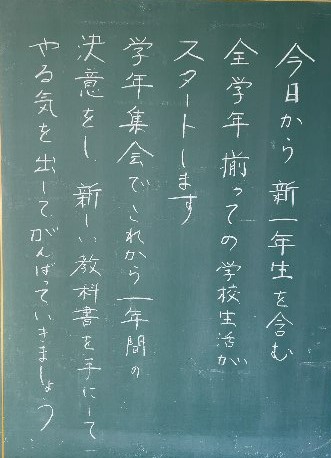 今日から 新一年生を含む
全学年 揃っての学校生活が
スタートします
学年集会でこれから一年間の
決意をし 新しい教科書を手にして
やる気を出してがんばっていきましょう.